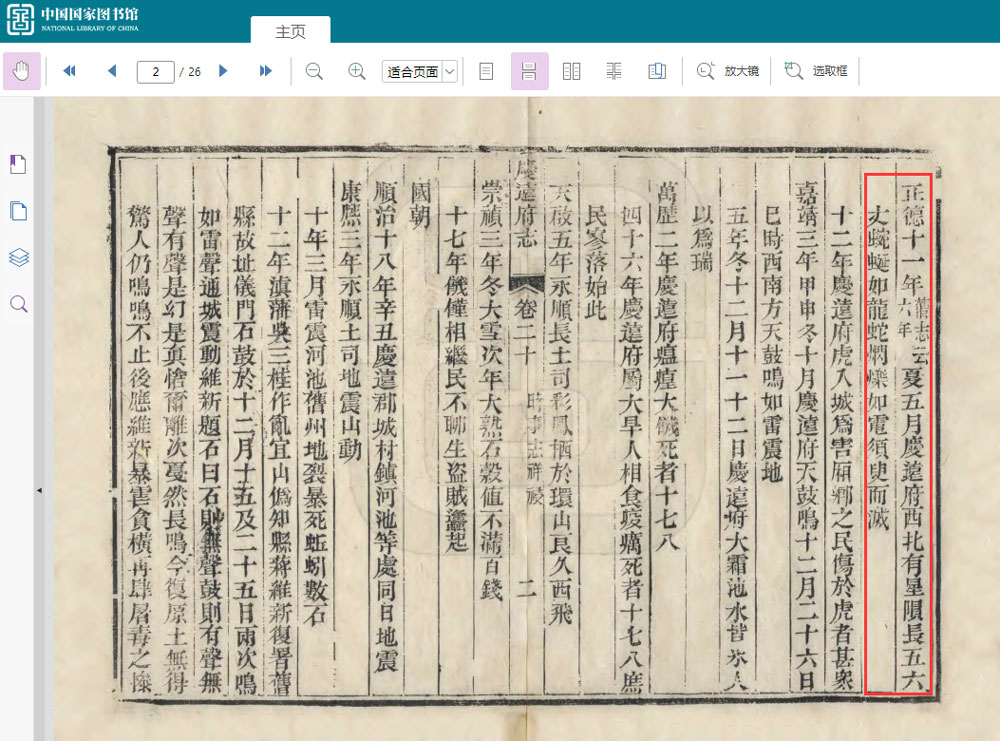 中国国家图书馆
NATIONAL LIBRARY OF CHINA
主页
2 / 26
适合页面
放大镜
选取框
正德十一年舊志云六年夏五月慶遠府西北有星隕長五六
丈蜿蜒如龍蛇炳爍如電須臾而滅
十二年慶遠府虎入城爲害厢鄕之民傷於虎者甚衆
嘉靖三年甲申冬十月慶遠府天鼓鳴十二月二十六日
巳時西南方天鼓鳴如雷震地
五年冬十二月十一十二日慶遠府大霜池水皆氷人
以爲瑞
萬歷二年慶遠府瘟瘟大饑死者十七八
四十六年慶遠府屬大旱人相食疫癘死者十七八庶
民寥落始此
天啟五年永順長士司彩鳳栖於環山良久西飛
慶遠府志
卷二十
時事志祥祲
二
崇禎三年冬大雪次年大熟石榖値不滿百錢
十七年饑饉相繼民不聊生盗賊蠭起
國朝
順治十八年辛丑慶遠郡城村鎮河池等處同日地震
康熙三年永順土司地震山動
十年三月雷震河池舊州地裂暴死蚯蚓數石
十二年滇藩吳三桂作亂宜山僞知縣蔣維新復署舊
縣故址儀門石鼓於十二月十五及二十五日兩次鳴
如雷聲通城震動維新題石曰石則無聲鼓則有聲無
聲有聲是幻是眞愴爾離次戞然長鳴今復原土無得
驚人仍鳴鳴不止後應維新暴虐貪橫再肆屠毒之慘